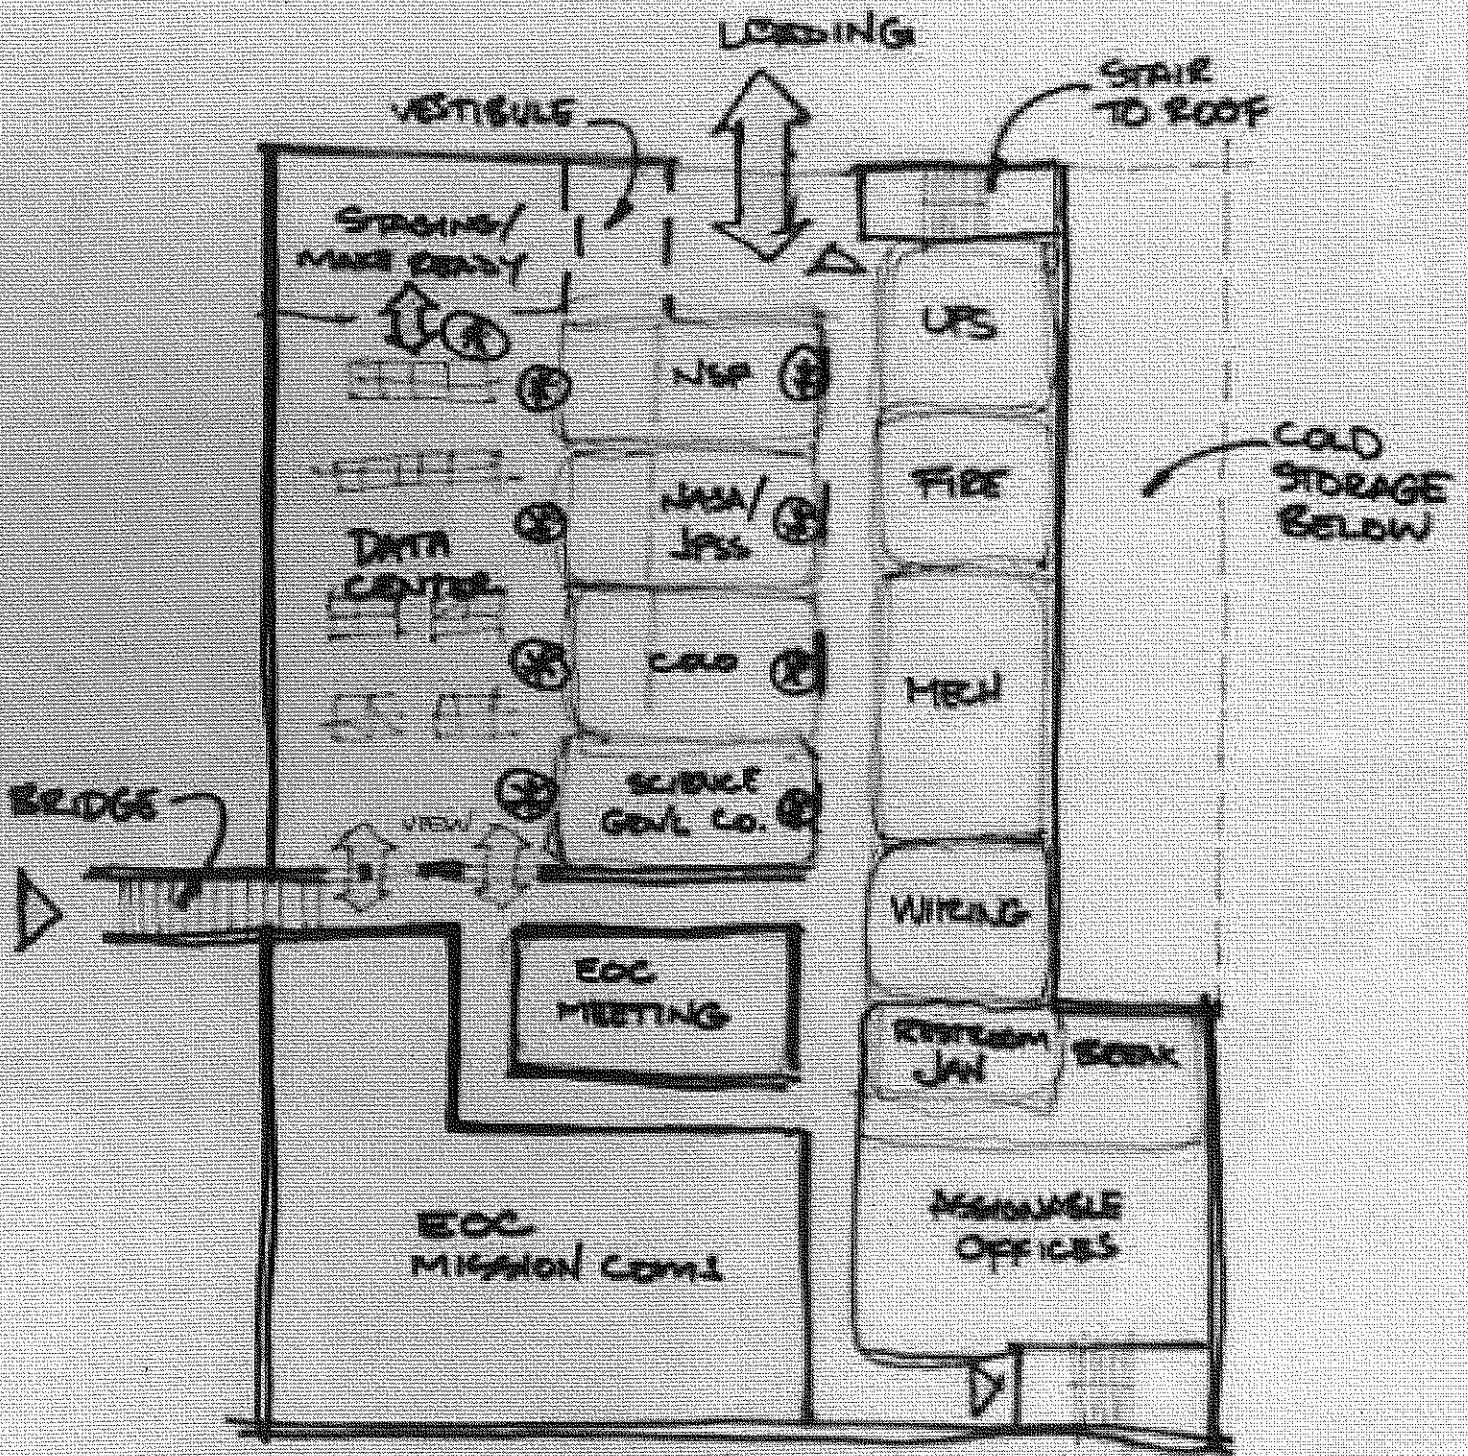 LOADING
STAIR
TO ROOF
VESTIBULE
STAGING/
MAKE READY
UPS
NSP
COLD
STORAGE
BELOW
FIRE
NASA/
JPSS
DATA
CENTER
COLO
MECH
SCIENCE
GEN'L CO.
BRIDGE
VIEW
WIRING
EOC
MEETING
RESTROOM
JAN
BREAK
ASSIGNABLE
OFFICES
EOC
MISSION